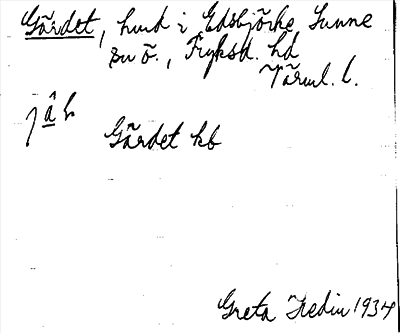 Gärdet, hmd i Edsbjörke Sunne
sn ö., Fryksd. hd
Värml. l.
Gärdet kb
Greta Hedin 1934